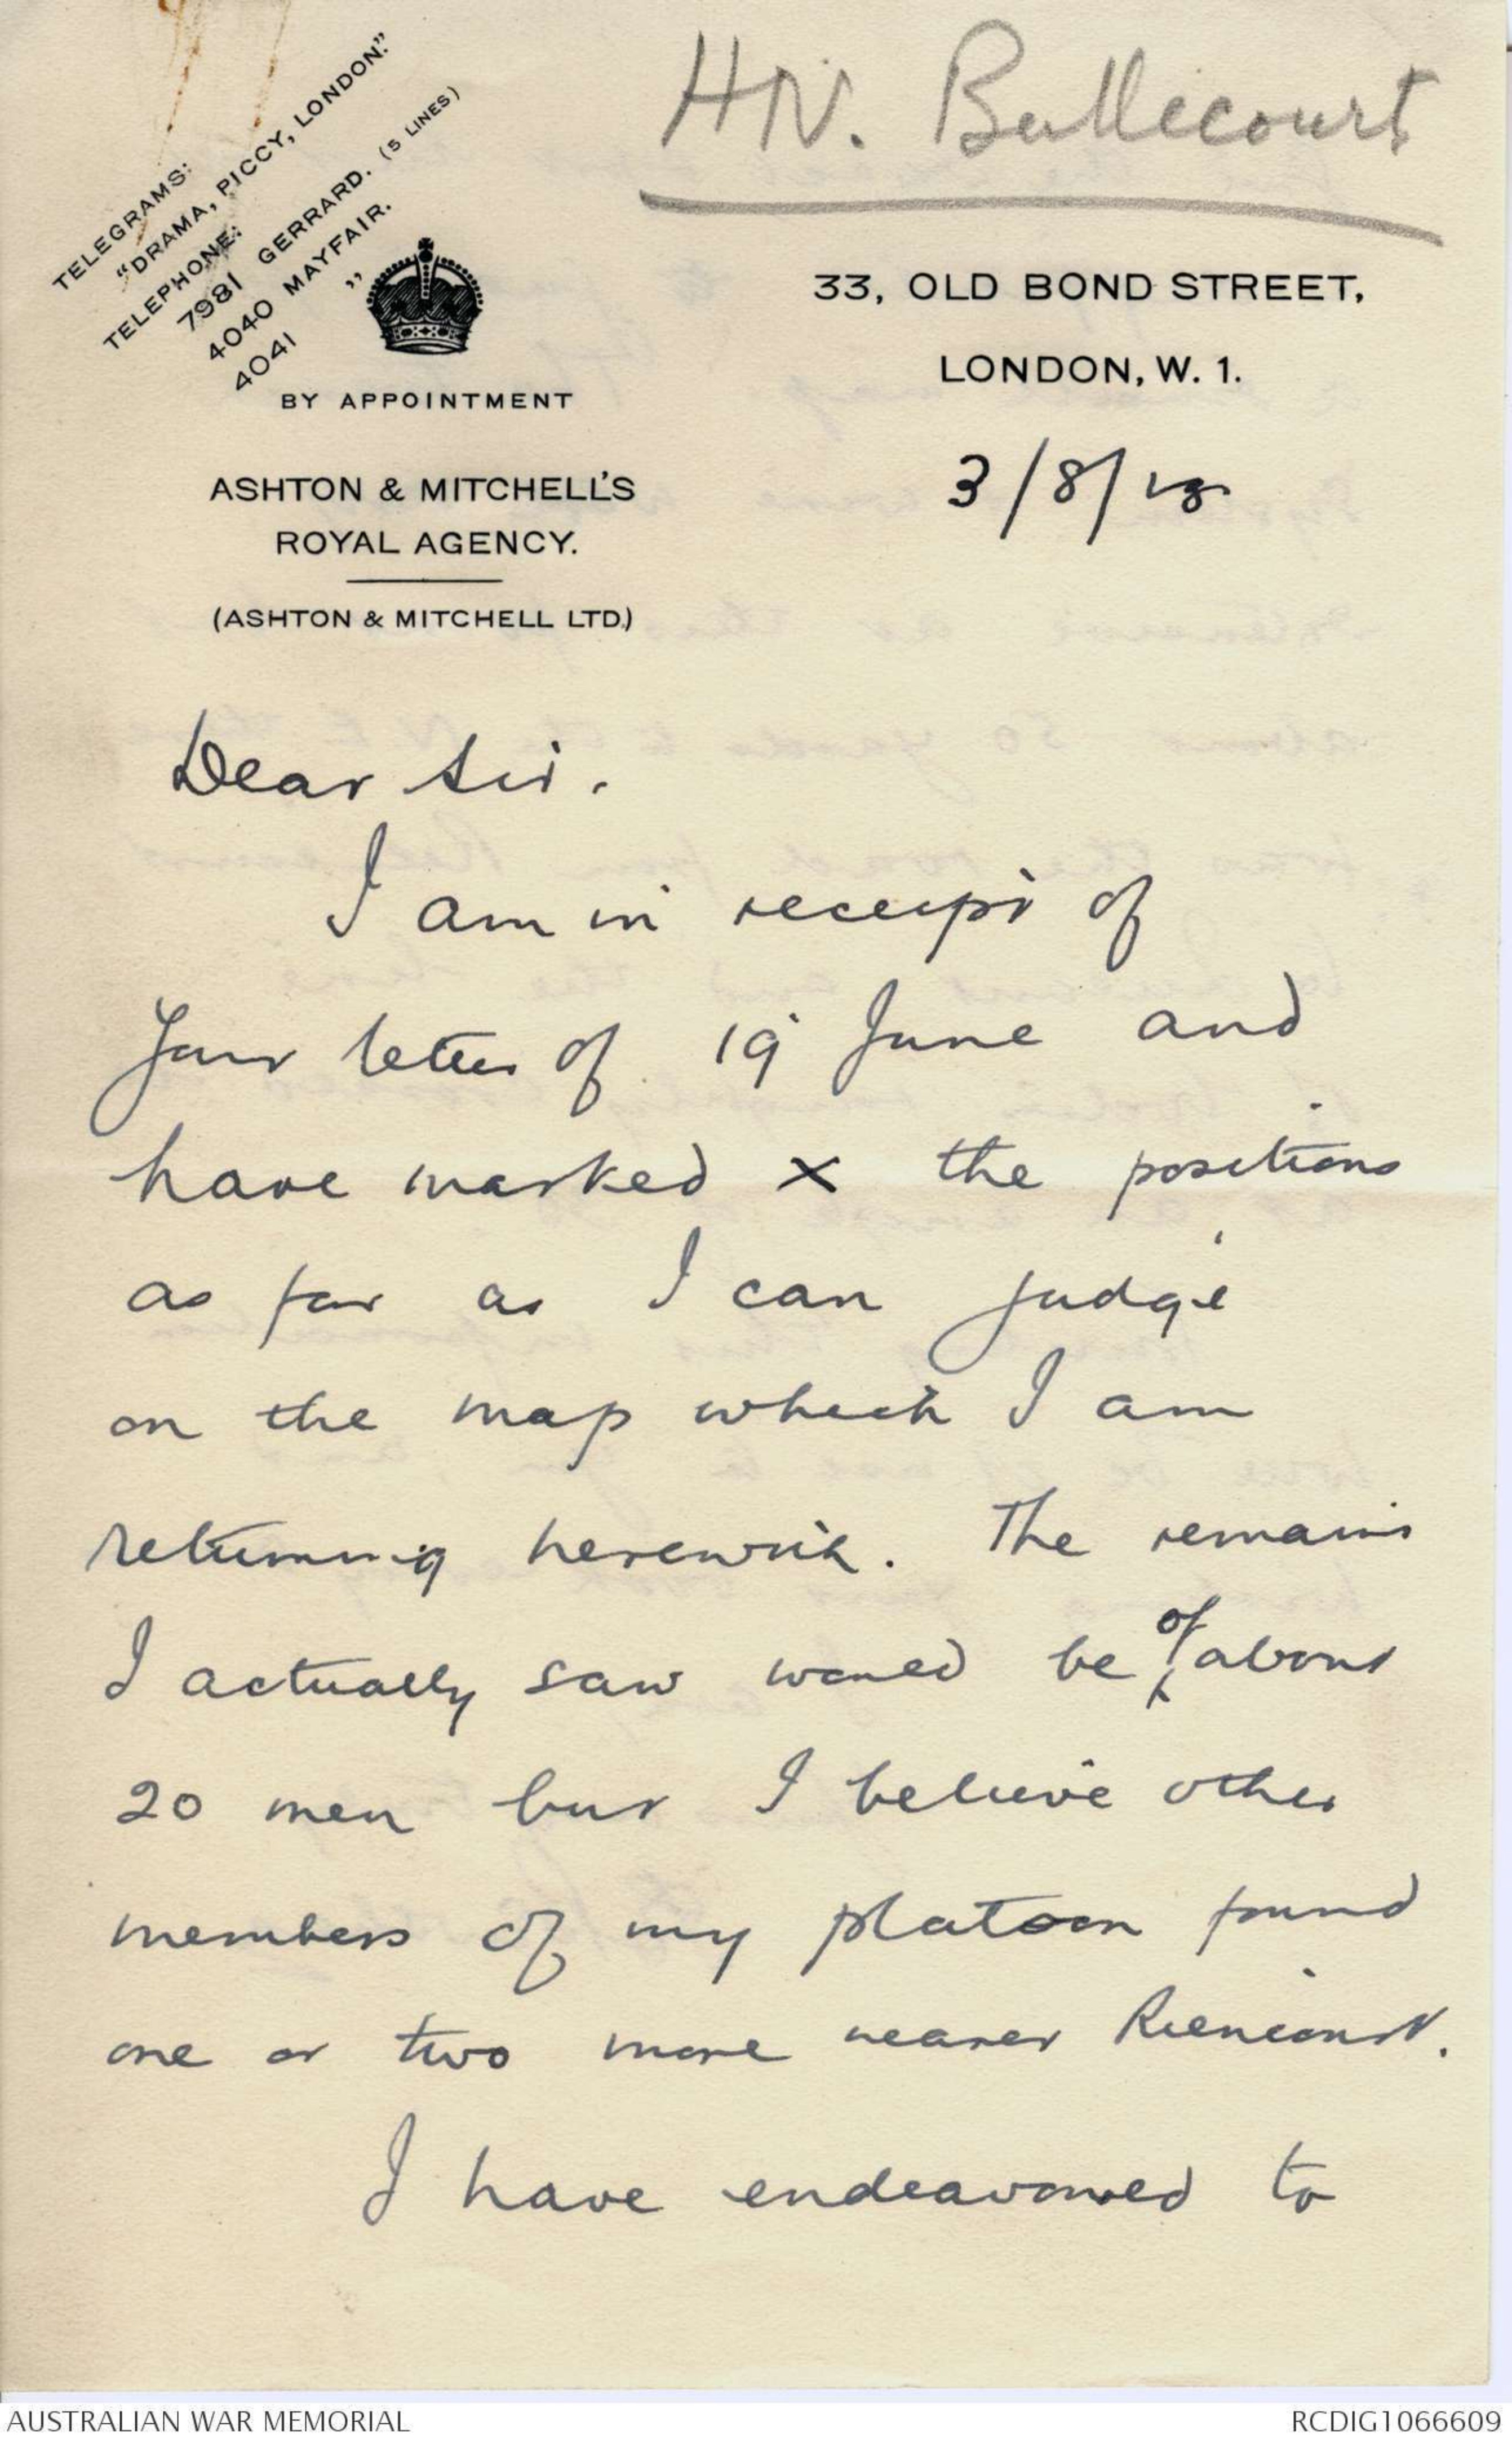 HN. Bullecourt
TELEGRAMS:
"DRAMA, PICCY, LONDON."
TELEPHONE:
7981 GERRARD. (5 LINES)
4040 MAYFAIR.
4041 "
BY APPOINTMENT
ASHTON & MITCHELL'S
ROYAL AGENCY.
(ASHTON & MITCHELL LTD.)
33, OLD BOND STREET,
LONDON, W. 1.
3/8/
Dear Sir.
I am in receipt of
your letter of 19 June and
have marked x the positions
as far as I can judge
on the map which I am
returning herewith. The remains
I actually saw would be of about
20 men but I believe other
members of my platoon found
one or two more nearer Riencourt.
I have endeavoured to
AUSTRALIAN WAR MEMORIAL
RCDIG1066609